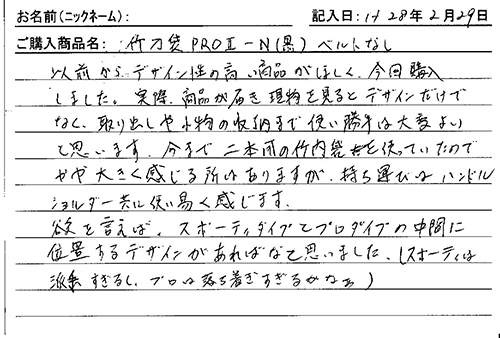 お名前(ニックネーム): 記入日:H28年2月29日
ご購入商品名: 竹刀袋PROⅡ-N(黒) ベルトなし
以前からデザイン性の高い商品がほしく、今回購入
しました。実際、商品が届き現物を見るとデザインだけで
なく、取り出しや小物の収納まで使い勝手は大変よい
と思います。今まで二本用の竹刀袋を使っていたので
やや大きく感じる所はありますが、持ち運びはハンドル
ショルダー共に使い易く感じます。
欲を言えば、スポーティタイプとプロタイプの中間に
位置するデザインがあればなと思いました。(スポーティは
派手すぎるし、プロは落ち着きすぎるかなぁ)